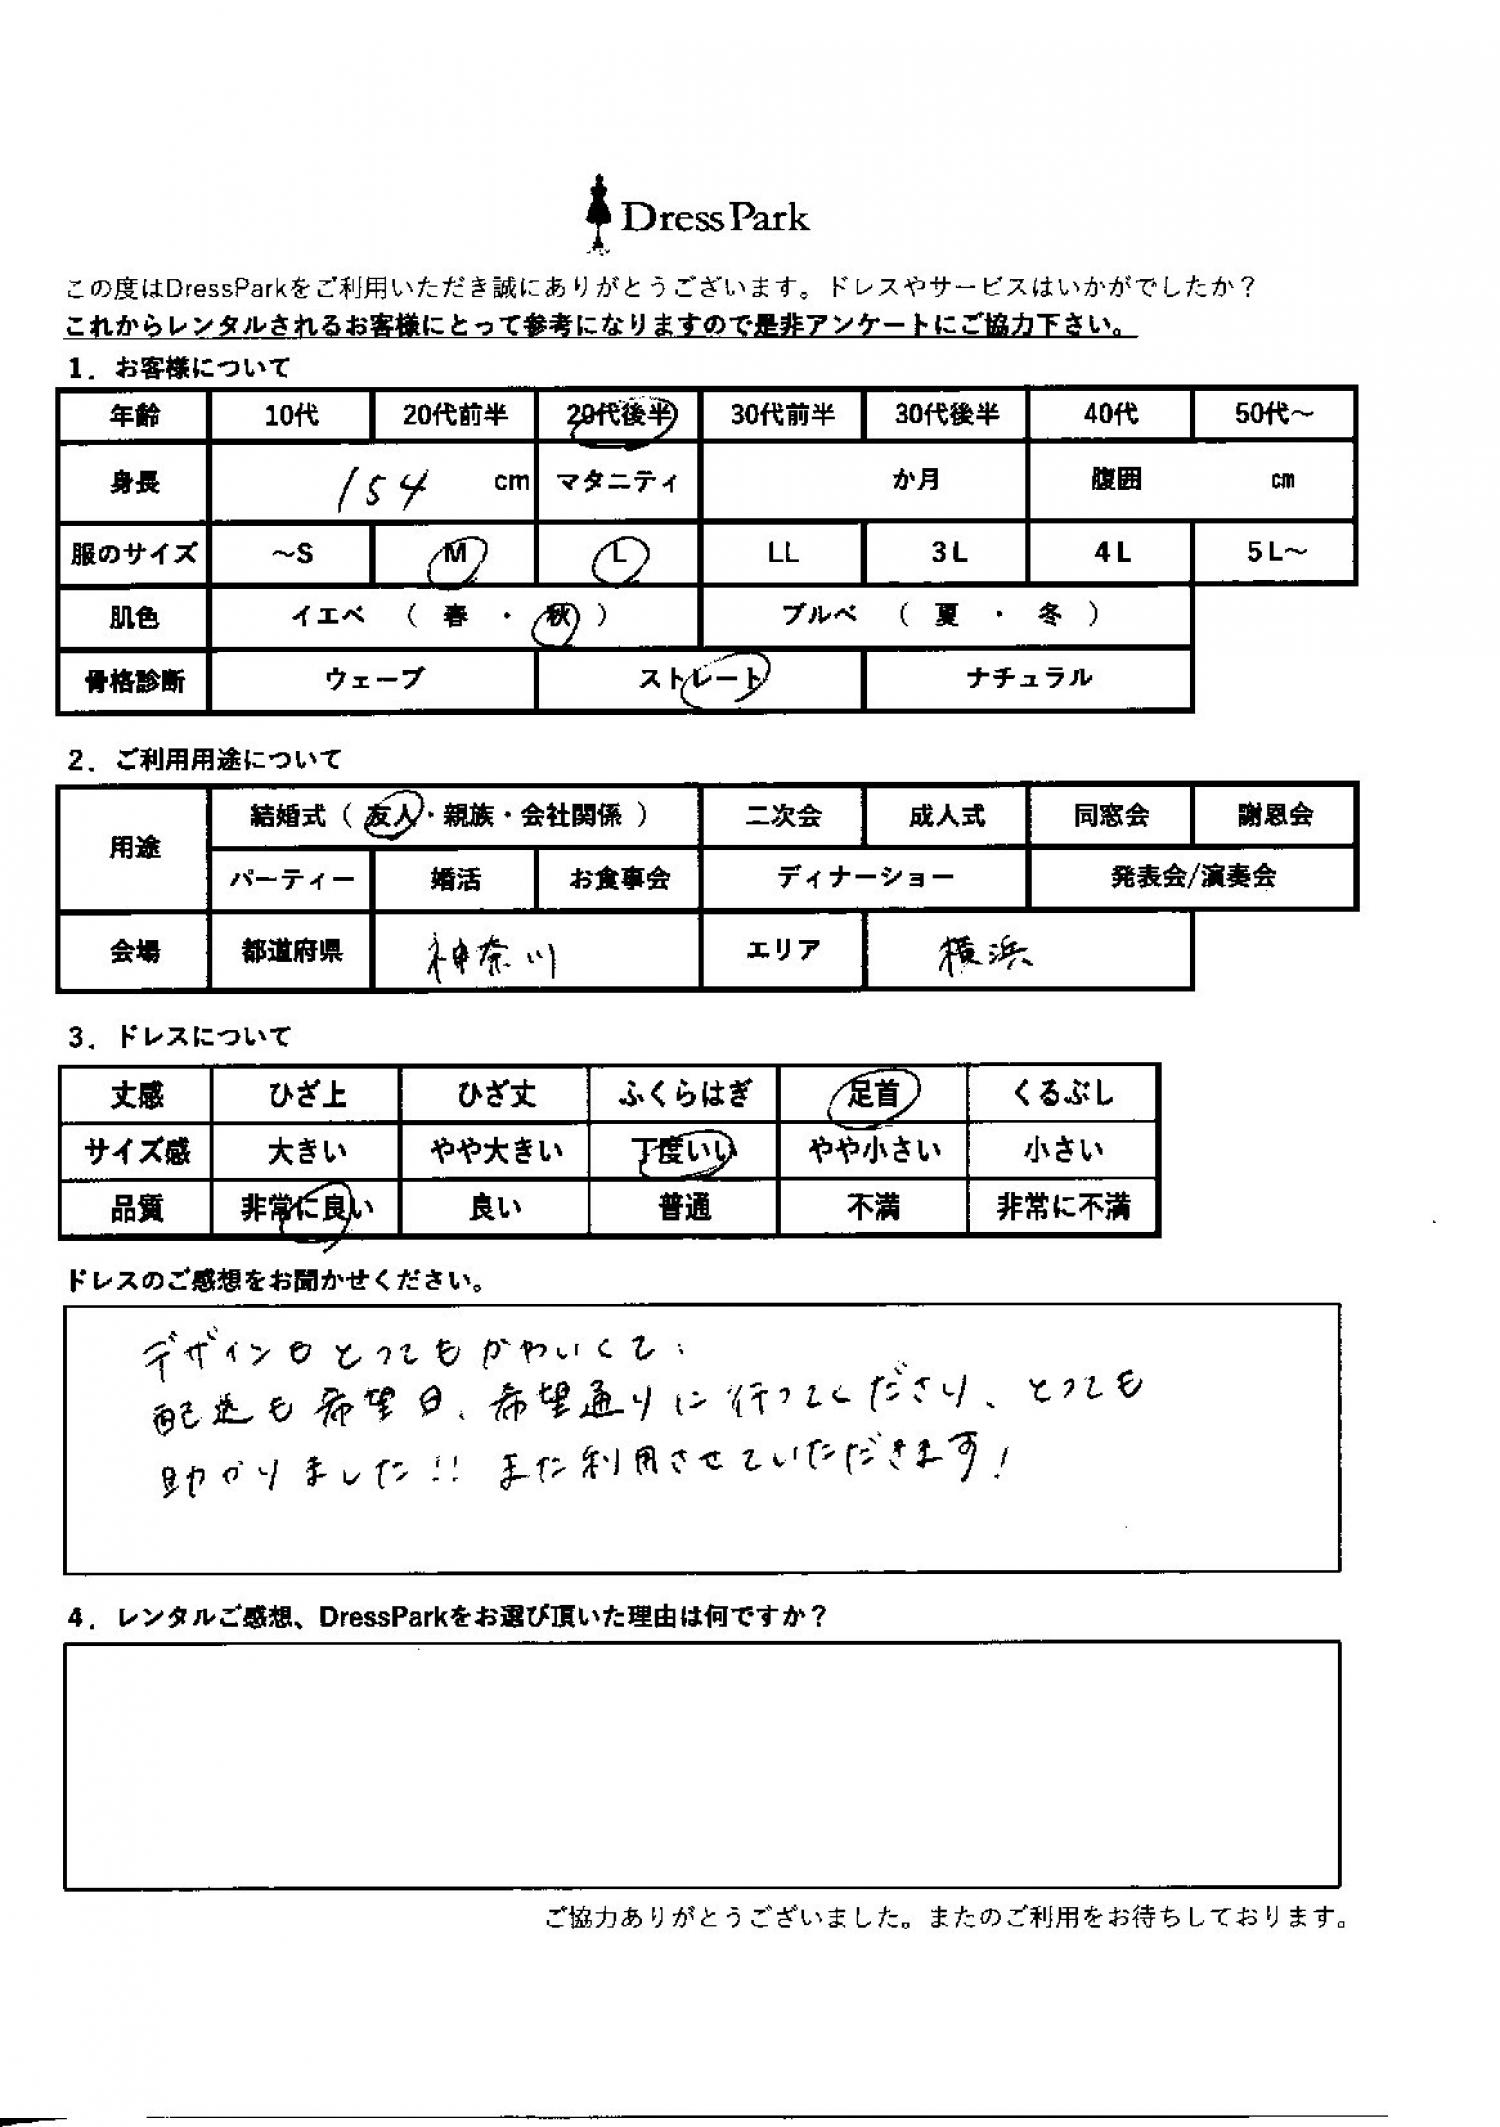 DressPark
この度はDressParkをご利用いただき誠にありがとうございます。ドレスやサービスはいかがでしたか？
これからレンタルされるお客様にとって参考になりますので是非アンケートにご協力下さい。
1．お客様について
年齢 10代 20代前半 20代後半 30代前半 30代後半 40代 50代～
身長 154 cm マタニティ か月 腹囲 cm
服のサイズ ～S M L LL 3L 4L 5L～
肌色 イエベ （ 春 ・ 秋 ） ブルベ （ 夏 ・ 冬 ）
骨格診断 ウェーブ ストレート ナチュラル
2．ご利用用途について
用途 結婚式（ 友人・親族・会社関係 ） 二次会 成人式 同窓会 謝恩会
パーティー 婚活 お食事会 ディナーショー 発表会/演奏会
会場 都道府県 神奈川 エリア 横浜
3．ドレスについて
丈感 ひざ上 ひざ丈 ふくらはぎ 足首 くるぶし
サイズ感 大きい やや大きい 丁度いい やや小さい 小さい
品質 非常に良い 良い 普通 不満 非常に不満
ドレスのご感想をお聞かせください。
デザインもとってもかわいくて、
配送も希望日、希望通りに行ってくださり、とっても
助かりました!! また利用させていただきます!
4．レンタルご感想、DressParkをお選び頂いた理由は何ですか？
ご協力ありがとうございました。またのご利用をお待ちしております。